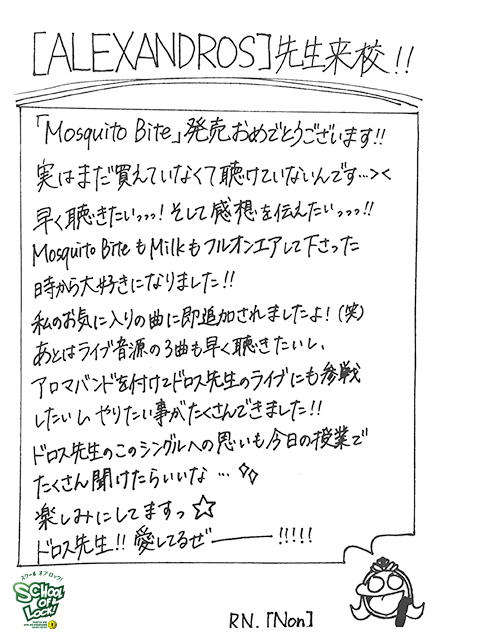 [ALEXANDROS]先生来校!!
「Mosquito Bite」発売おめでとうございます!!
実はまだ買えていなくて聴けていないんです…><
早く聴きたいっっっ!そして感想を伝えたいっっっ!!
Mosquito BiteもMilkもフルオンエアして下さった
時から大好きになりました!!
私のお気に入りの曲に即追加されましたよ!(笑)
あとはライブ音源の3曲も早く聴きたいし、
アロマバンドを付けてドロス先生のライブにも参戦
したいし やりたい事がたくさんできました!!
ドロス先生のこのシングルへの思いも今日の授業で
たくさん聞けたらいいな…◇◇
楽しみにしてますっ☆
ドロス先生!!愛してるぜ――!!!!!
スクール オブ ロック!
SCHOOL OF LOCK!
RN.[Non]